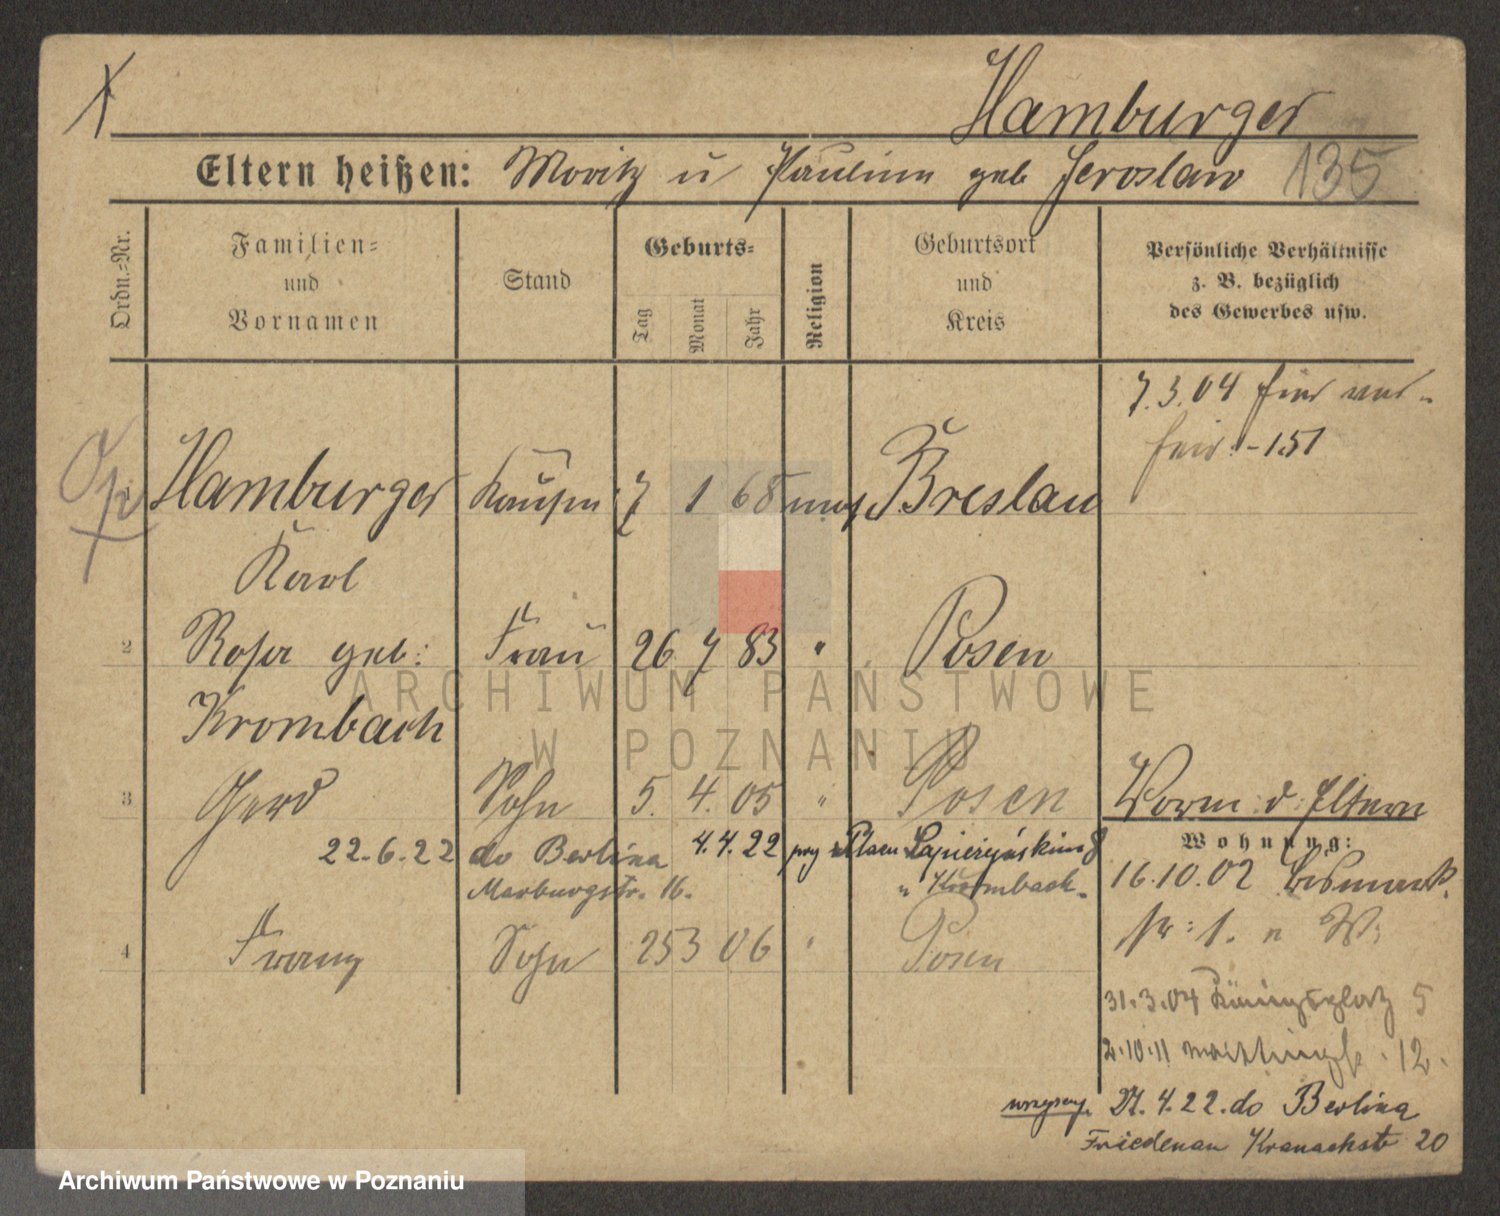 Hamburger
Eltern heißen: Moritz u Pauline geb Jeroslaw 135
Ordn.-Nr.
Familien-
und
Vornamen
Stand
Geburts-
Tag
Monat
Jahr
Religion
Geburtsort
und
Kreis
Persönliche Verhältnisse
z. B. bezüglich
des Gewerbes usw.
7.3.04
151
Hamburger Kaufm 7 1 68 mos Breslau
Karl
2 Rosa geb: Frau 26 7 83 " Posen
Krombach
3 Gerd Sohn 5. 4. 05 " Posen
Vorm. d. Eltern
Wohnung:
22.6.22 do Berlina 4.4.22 przy Placu Sapieżyńskim 8
Marburgstr. 16. u Krombach.
16.10.02 Bismarck
str: 1. n W:
4 Franz Sohn 25 3 06 " Posen
31.3.04 Königsplatz 5
2.10.11 12.
wszyscy 27.4.22. do Berlina
Friedenau Kranachstr 20
ARCHIWUM PAŃSTWOWE
W POZNANIU
Archiwum Państwowe w Poznaniu